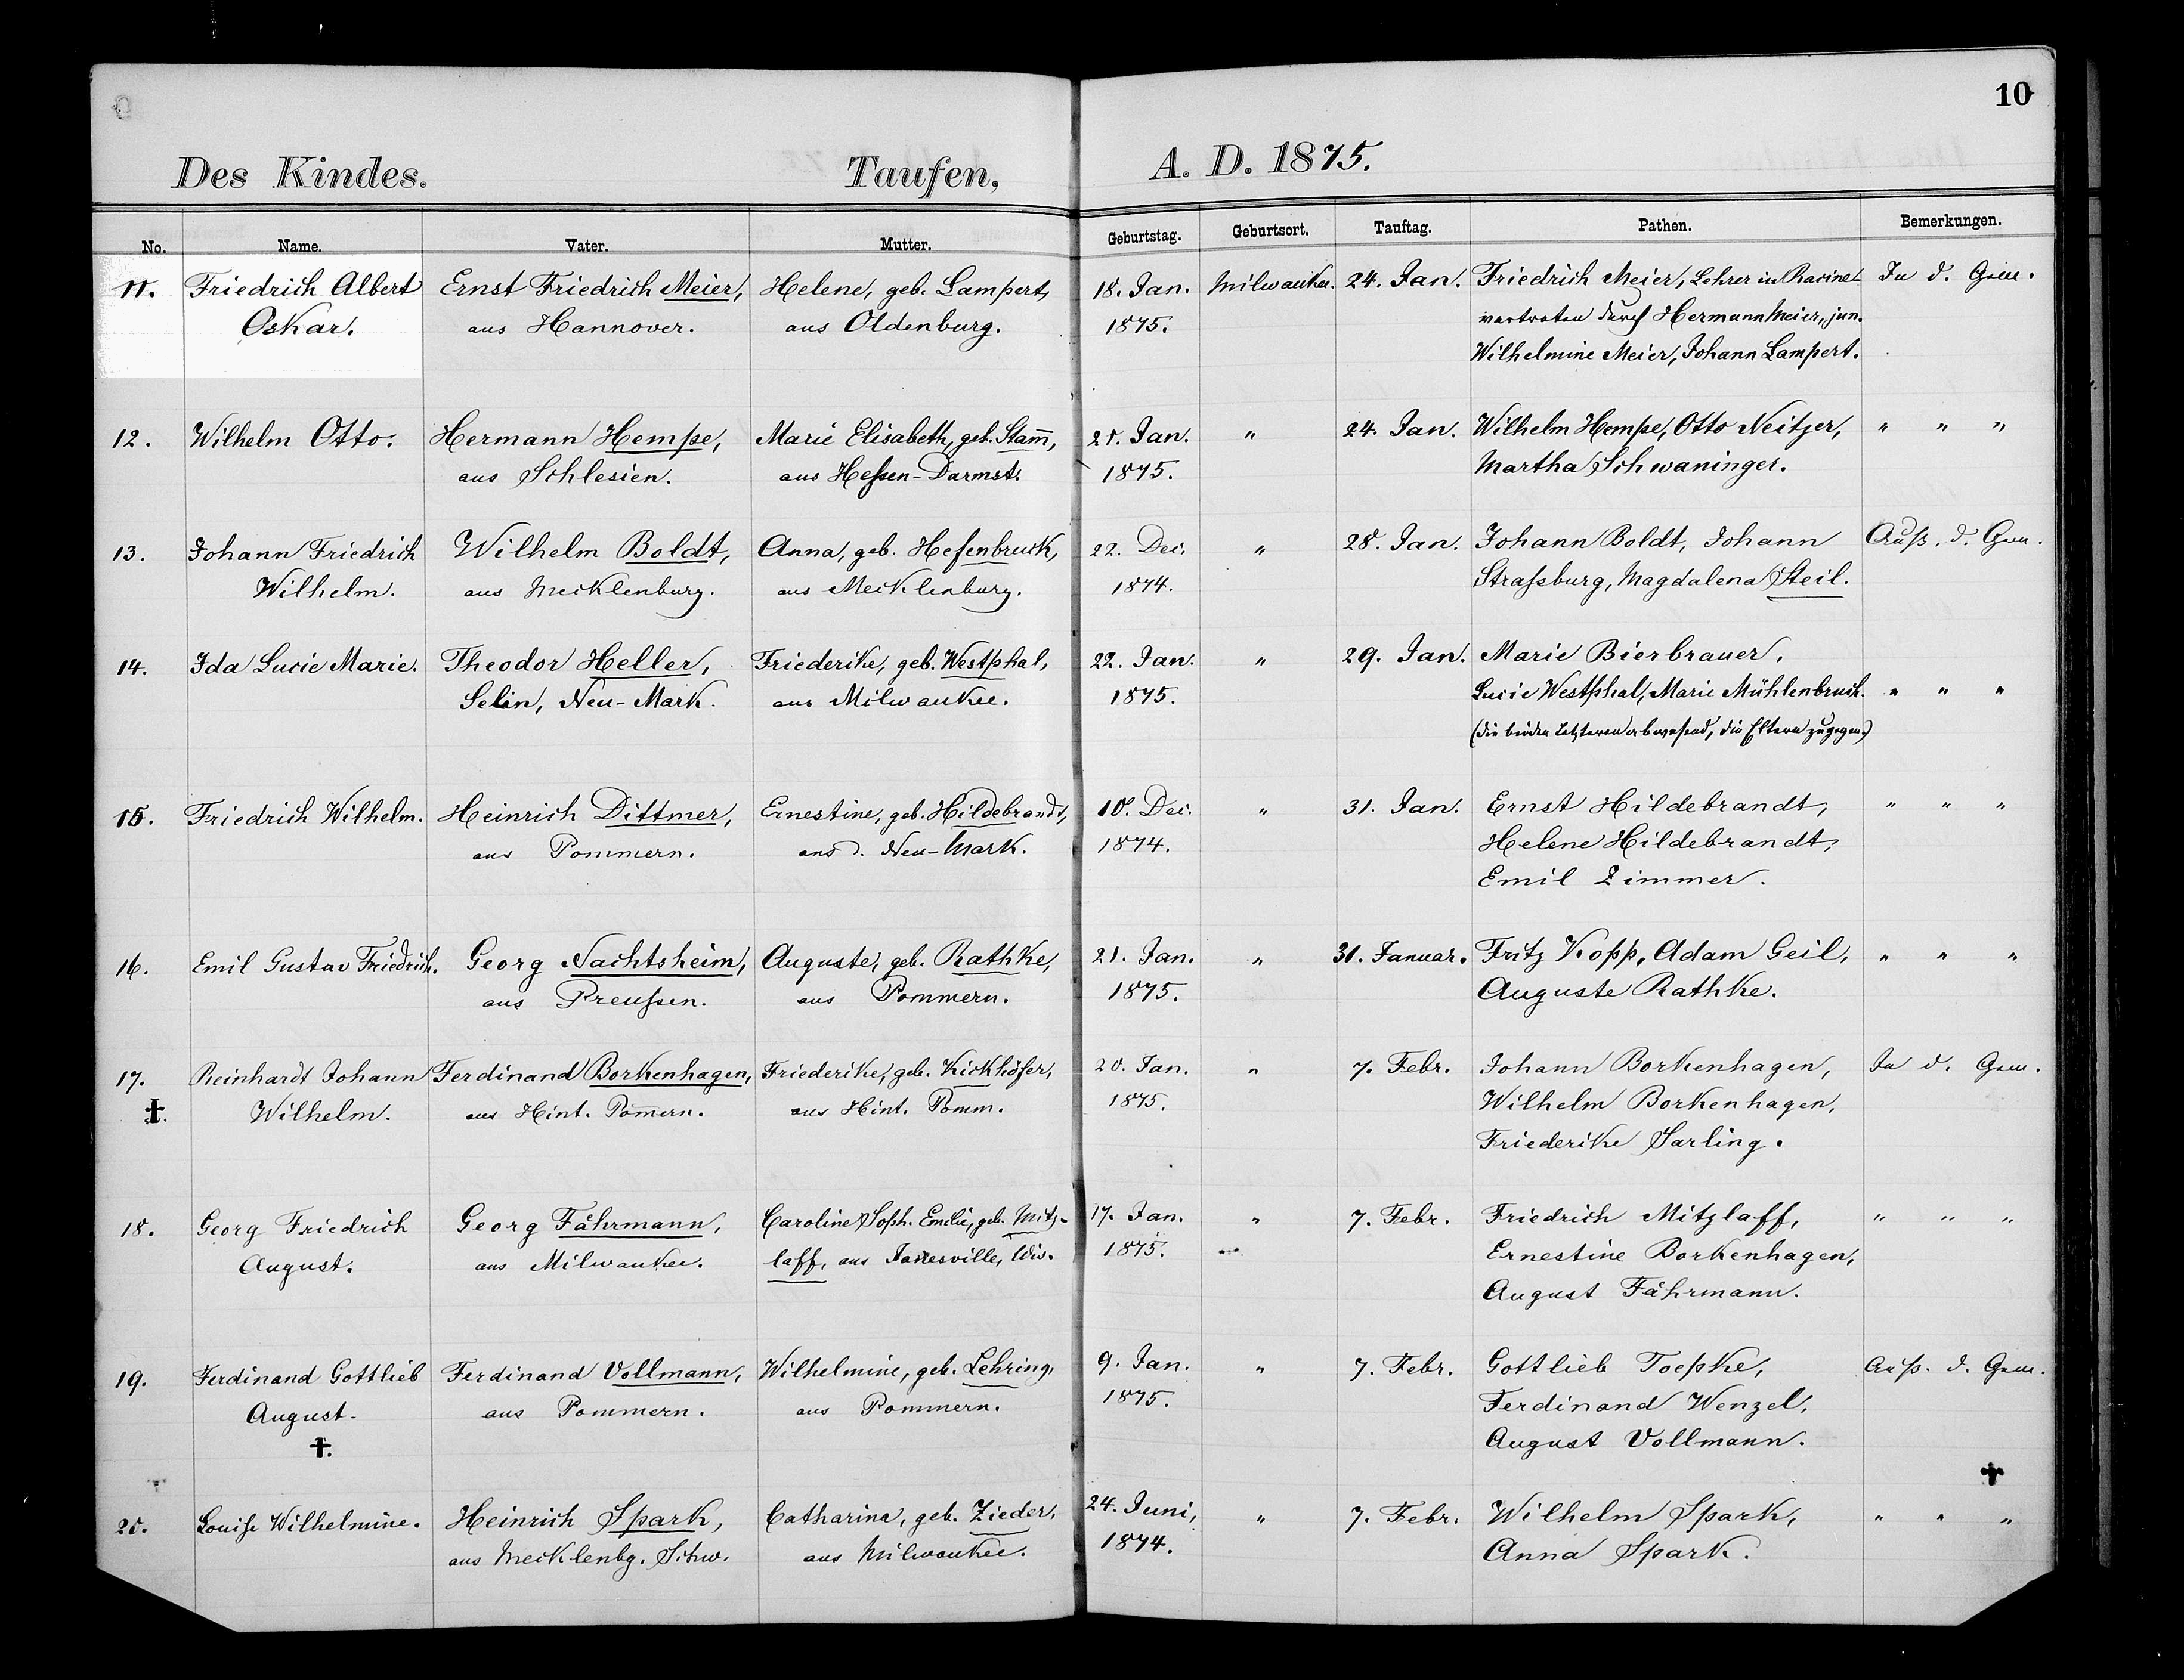 10
Des Kindes. Taufen, A. D. 1875.
No. Name. Vater. Mutter. Geburtstag. Geburtsort. Tauftag. Pathen. Bemerkungen.
11. Friedrich Albert Ernst Friedrich Meier, Helene, geb. Lampert, 18. Jan. Milwaukee. 24. Jan. Friedrich Meier, Lehrer in Racine In d. Gem.
Oskar. aus Hannover. aus Oldenburg. 1875. vertreten durch Hermann Meier, jun.
Wilhelmine Meier, Johann Lampert.
12. Wilhelm Otto. Hermann Hempe, Marie Elisabeth, geb. Stam̅, 21. Jan. " 24. Jan. Wilhelm Hempe, Otto Neitzer, " " "
aus Schlesien. aus Heſsen-Darmst. 1875. Martha Schwaninger.
13. Johann Friedrich Wilhelm Boldt, Anna, geb. Hesenbruck, 22. Dec. " 28. Jan. Johann Boldt, Johann Auß. d. Gem.
Wilhelm. aus Mecklenburg. aus Mecklenburg. 1874. Straſsburg, Magdalena Steil.
14. Ida Lucie Marie. Theodor Heller, Friederike, geb. Westphal, 22. Jan. " 29. Jan. Marie Bierbrauer,
Selin, Neu-Mark. aus Milwaukee. 1875. Lucie Westphal, Marie Mühlenbruch. " " "
(die beiden Letzteren abwesend, die Eltern zugegen)
15. Friedrich Wilhelm. Heinrich Dittmer, Ernestine, geb. Hildebrandt, 10. Dec. " 31. Jan. Ernst Hildebrandt, " " "
aus Pommern. aus d. Neu-Mark. 1874. Helene Hildebrandt,
Emil Zimmer.
16. Emil Gustav Friedrich. Georg Nachtsheim, Auguste, geb. Rathke, 21. Jan. " 31. Januar. Fritz Kopp, Adam Geil, " " "
aus Preuſsen. aus Pommern. 1875. Auguste Rathke.
17. Reinhardt Johann Ferdinand Borkenhagen, Friederike, geb. Kickhöfer, 20. Jan. " 7. Febr. Johann Borkenhagen, In d. Gem.
†. Wilhelm. aus Hint. Pom̅ern. aus Hint. Pomm. 1875. Wilhelm Borkenhagen,
Friederike Sarling.
18. Georg Friedrich Georg Fährmann, Caroline Soph. Emilie, geb. Mitz- 17. Jan. " 7. Febr. Friedrich Mitzlaff, " " "
August. aus Milwaukee. laff, aus Janesville, Wis. 1875. Ernestine Borkenhagen,
August Fährmann.
19. Ferdinand Gottlieb Ferdinand Vollmann, Wilhelmine, geb. Lehring, 9. Jan. " 7. Febr. Gottlieb Toepke, Auß. d. Gem.
August. aus Pommern. aus Pommern. 1875. Ferdinand Wenzel,
†. August Vollmann.
†
20. Louiſe Wilhelmine. Heinrich Spark, Catharina, geb. Zieder, 24. Juni, " 7. Febr. Wilhelm Spark, " " "
aus Mecklenbg. Schw. aus Milwaukee. 1874. Anna Spark.